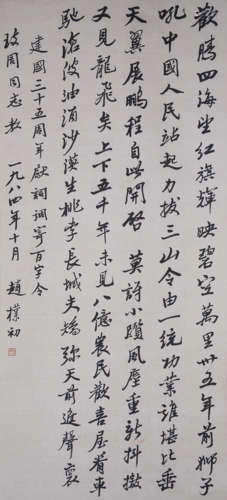 歡騰四海望紅旗輝映碧空萬里卅五年前獅子
吼中國人民站起力拔三山令由一統功業誰堪比垂
天翼展鵬程自此開啓 莫訝小躓風塵重新抖擻
又見龍飛矣上下五千年未見八億農民歡喜屋脊車
馳滄波油涌沙漠生桃李長城夭矯彌天前進聲裏
建國三十五周年獻詞調寄百字令
周同志教 一九八四年十月 趙樸初